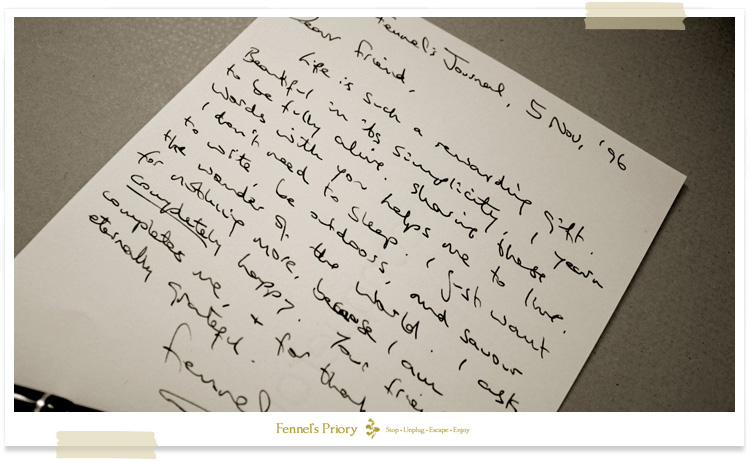 Fennel's Journal, 5 Nov, '96
Dear Friend,
Life is such a rewarding gift.
Beautiful in its simplicity, I yearn
to be fully alive. Sharing these
words with you helps me to live.
I don't need to sleep. I just want
to write, be outdoors, and savour
the wonder of the world. I ask
for nothing more, because I am
completely happy. Your frie
completes me, & for that
eternally grateful.
Fennel
Fennel's Priory
Stop • Unplug • Escape • Enjoy